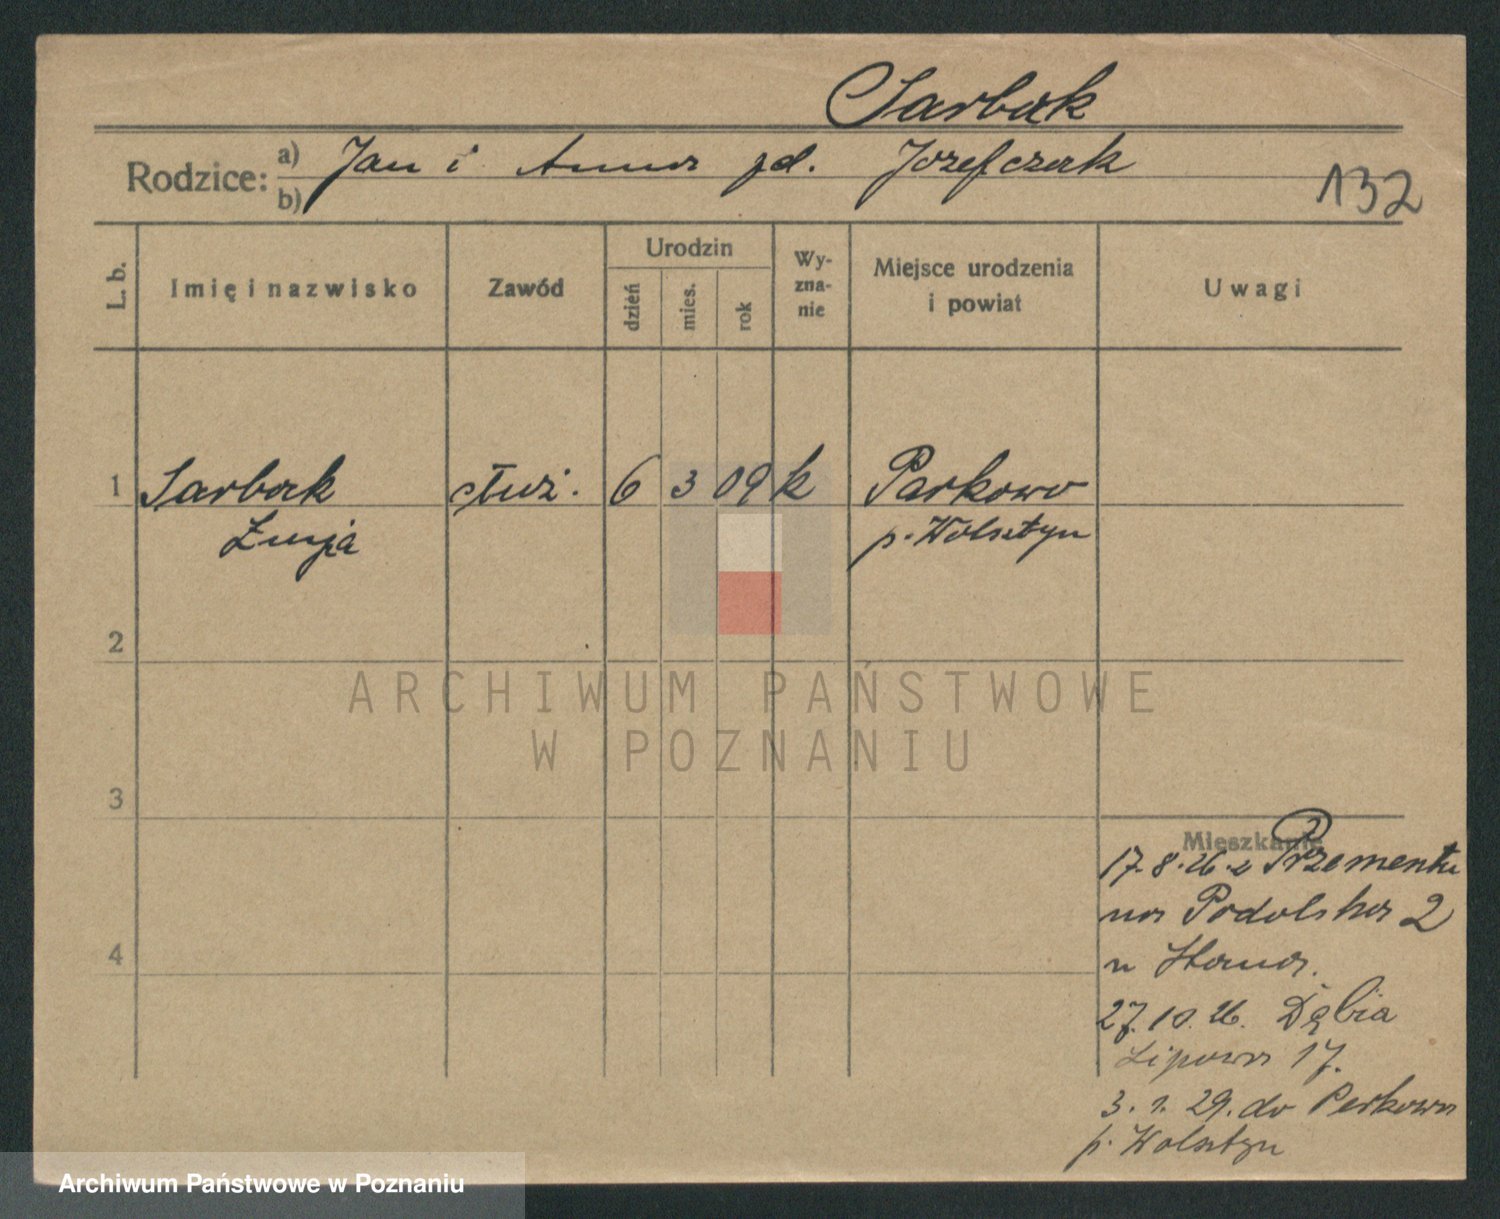 Sarbak
Rodzice: a) Jan i Anna zd. Józefczak
b)
132
L. b.
Imię i nazwisko
Zawód
Urodzin
dzień
mies.
rok
Wy-
zna-
nie
Miejsce urodzenia
i powiat
Uwagi
1 Sarbak służ. 6 3 09 k Parkowo
p. Wolsztyn
2
ARCHIWUM PAŃSTWOWE
W POZNANIU
3
Mieszkanie
17.8.26. z Przementu
na Podolska 2
4
27.10.26. Dąbia
Lipowa 17.
3.1.29. do Perkowa
p. Wolsztyn
Archiwum Państwowe w Poznaniu